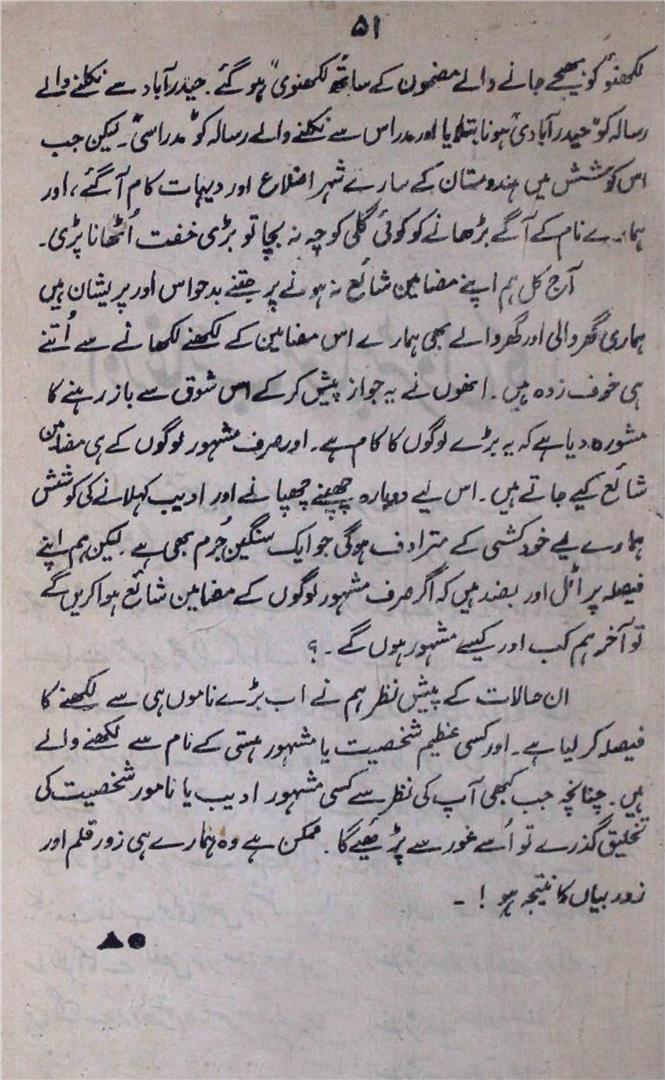 ۵۱
لکھنؤ کو بھیجے جانے والے مضمون کے ساتھ "لکھنوی" ہو گئے۔ حیدرآباد سے نکلنے والے
رسالہ کو "حیدرآبادی" ہونا بتلایا اور مدراس سے نکلنے والے رسالہ کو "مدراسی"۔ لیکن جب
اس کوشش میں ہندوستان کے سارے شہر اضلاع اور دیہات کام آگئے، اور
ہمارے نام کے آگے بڑھانے کو کوئی گلی کوچہ نہ بچا تو بڑی خفت اُٹھانا پڑی۔
آج کل ہم اپنے مضامین شائع نہ ہونے پر جتنے بدحواس اور پریشان ہیں
ہماری گھر والی اور گھر والے بھی ہمارے اس مضامین کے لکھنے لکھانے سے اُتنے
ہی خوف زدہ ہیں۔ انھوں نے یہ جواز پیش کر کے اس شوق سے باز رہنے کا
مشورہ دیا ہے کہ یہ بڑے لوگوں کا کام ہے۔ اور صرف مشہور لوگوں کے ہی مضامین
شائع کیے جاتے ہیں۔ اس لیے دوبارہ چھپنے چھپانے اور ادیب کہلانے کی کوشش
ہمارے لیے خودکشی کے مترادف ہوگی جو ایک سنگین جُرم بھی ہے۔ لیکن ہم اپنے
فیصلہ پر اٹل اور بضد ہیں کہ اگر صرف مشہور لوگوں کے مضامین شائع ہوا کریں گے
تو آخر ہم کب اور کیسے مشہور ہوں گے۔ ؟
ان حالات کے پیش نظر ہم نے اب بڑے ناموں ہی سے لکھنے کا
فیصلہ کر لیا ہے۔ اور کسی عظیم شخصیت یا مشہور ہستی کے نام سے لکھنے والے
ہیں۔ چنانچہ جب کبھی آپ کی نظر سے کسی مشہور ادیب یا نامور شخصیت کی
تخلیق گذرے تو اُسے غور سے پڑھیے گا۔ ممکن ہے وہ ہمارے ہی زور قلم اور
زور بیاں کا نتیجہ ہو ! ۔